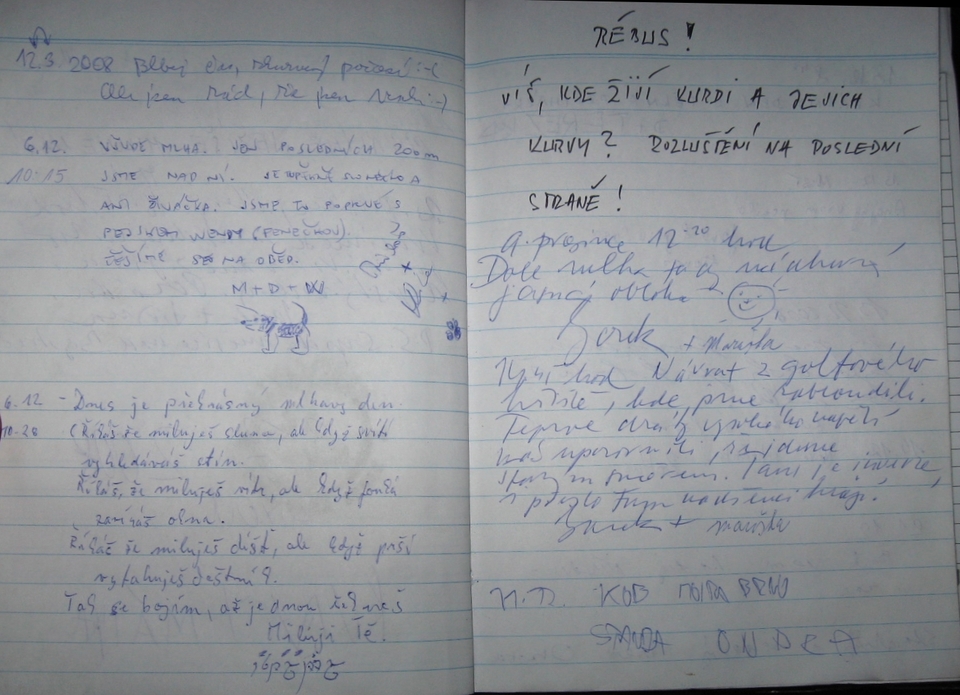 12.3. 2008
jsem rád, že jsem :-)
6.12. VŠUDE MLHA. JEN POSLEDNÍCH 200m
10:15 JSME NAD NÍ.
ANI ŽIVÁČKA. JSME TU POPRVÉ S
PEJSKEM WENDY (FENEČKOU).
TĚŠÍME SE NA OBĚD.
M + D + W
6.12 - Dnes je překrásný mlhavý den.
10-28 (Říkáš že miluješ slunce, ale když svítí
vyhledáváš stín.
Říkáš, že miluješ vítr, ale když fouká
zavíráš okna.
Říkáš že miluješ déšť, ale když prší
vytahuješ deštník.
Tak se bojím, až jednou řekneš
Miluji Tě.
RÉBUS!
VÍŠ, KDE ŽIJÍ KURDI A JEJICH
KURVY? ROZLUŠTĚNÍ NA POSLEDNÍ
STRANĚ!
9. prosince 12-20 hod
Dole mlha tady nádherná
jasná obloha
Jarek + Maruška
hod Návrat z golfového
hřiště, kde jsme zabloudili.
Teprve dráty vysokého napětí
nás upozornily, že jdeme
špatným směrem. Tam je inverze
i přesto nadšenci hrají.
Jarek + Maruška
KOB BRNO
STANDA ONDRA